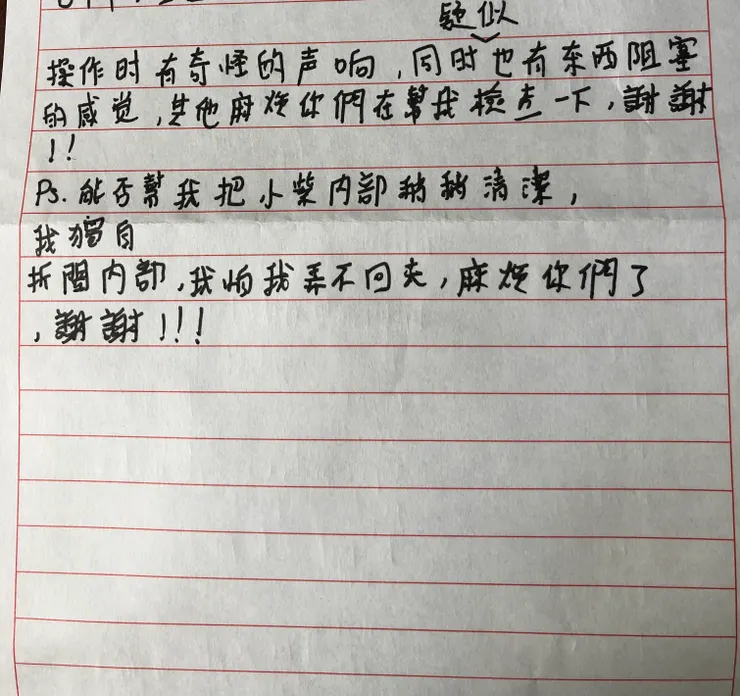 疑似
操作时有奇怪的声响,同时也有东西阻塞
的感觉,其他麻烦你們在幫我檢查一下,謝謝
!!
Ps.能否幫我把小柴内部稍稍清潔,
我獨自
拆開内部,我怕我弄不回去,麻烦你們了
,謝謝!!!